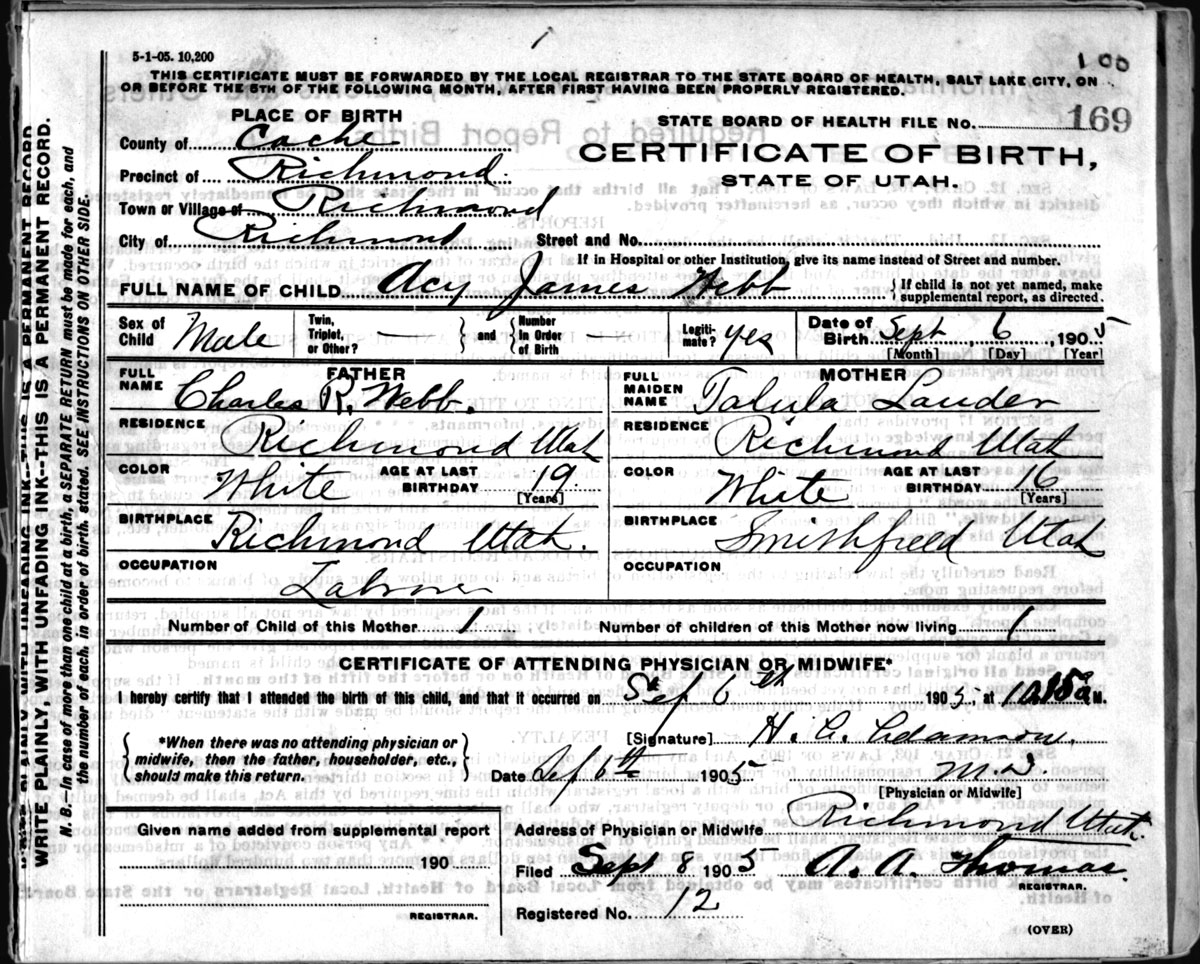 1
5-1-05. 10,200
1 00
THIS CERTIFICATE MUST BE FORWARDED BY THE LOCAL REGISTRAR TO THE STATE BOARD OF HEALTH, SALT LAKE CITY, ON
OR BEFORE THE 5TH OF THE FOLLOWING MONTH, AFTER FIRST HAVING BEEN PROPERLY REGISTERED.
PLACE OF BIRTH
STATE BOARD OF HEALTH FILE No. 169
County of Cache
CERTIFICATE OF BIRTH,
Precinct of Richmond.
STATE OF UTAH.
Town or Village of Richmond
City of Richmond Street and No.
If in Hospital or other Institution, give its name instead of Street and number.
FULL NAME OF CHILD Acy James Webb { If child is not yet named, make
supplemental report, as directed.
Sex of Child Male Twin, Triplet, or Other? — } and { Number In Order of Birth — Legitimate? yes Date of Birth Sept 6 1905
[Month] [Day] [Year]
FATHER MOTHER
FULL NAME Charles R. Webb. FULL MAIDEN NAME Talula Lauder
RESIDENCE Richmond Utah RESIDENCE Richmond Utah
COLOR White AGE AT LAST BIRTHDAY 19 [Years] COLOR White AGE AT LAST BIRTHDAY 16 [Years]
BIRTHPLACE Richmond Utah. BIRTHPLACE Smithfield Utah
OCCUPATION Laborer OCCUPATION
Number of Child of this Mother 1 Number of children of this Mother now living 1
CERTIFICATE OF ATTENDING PHYSICIAN OR MIDWIFE*
I hereby certify that I attended the birth of this child, and that it occurred on Sept 6th 1905, at M.
{ *When there was no attending physician or
midwife, then the father, householder, etc.,
should make this return. }
[Signature] H. C. Adamson.
Date Sep 6th 1905 M.D.
[Physician or Midwife]
Given name added from supplemental report
190
REGISTRAR.
Address of Physician or Midwife Richmond Utah.
Filed Sept 8 1905 A. A. Thomas.
REGISTRAR.
Registered No. 12
(OVER)
WRITE PLAINLY, WITH UNFADING INK--THIS IS A PERMANENT RECORD.
N. B.—In case of more than one child at a birth, a SEPARATE RETURN must be made for each, and
the number of each, in order of birth, stated. SEE INSTRUCTIONS ON OTHER SIDE.